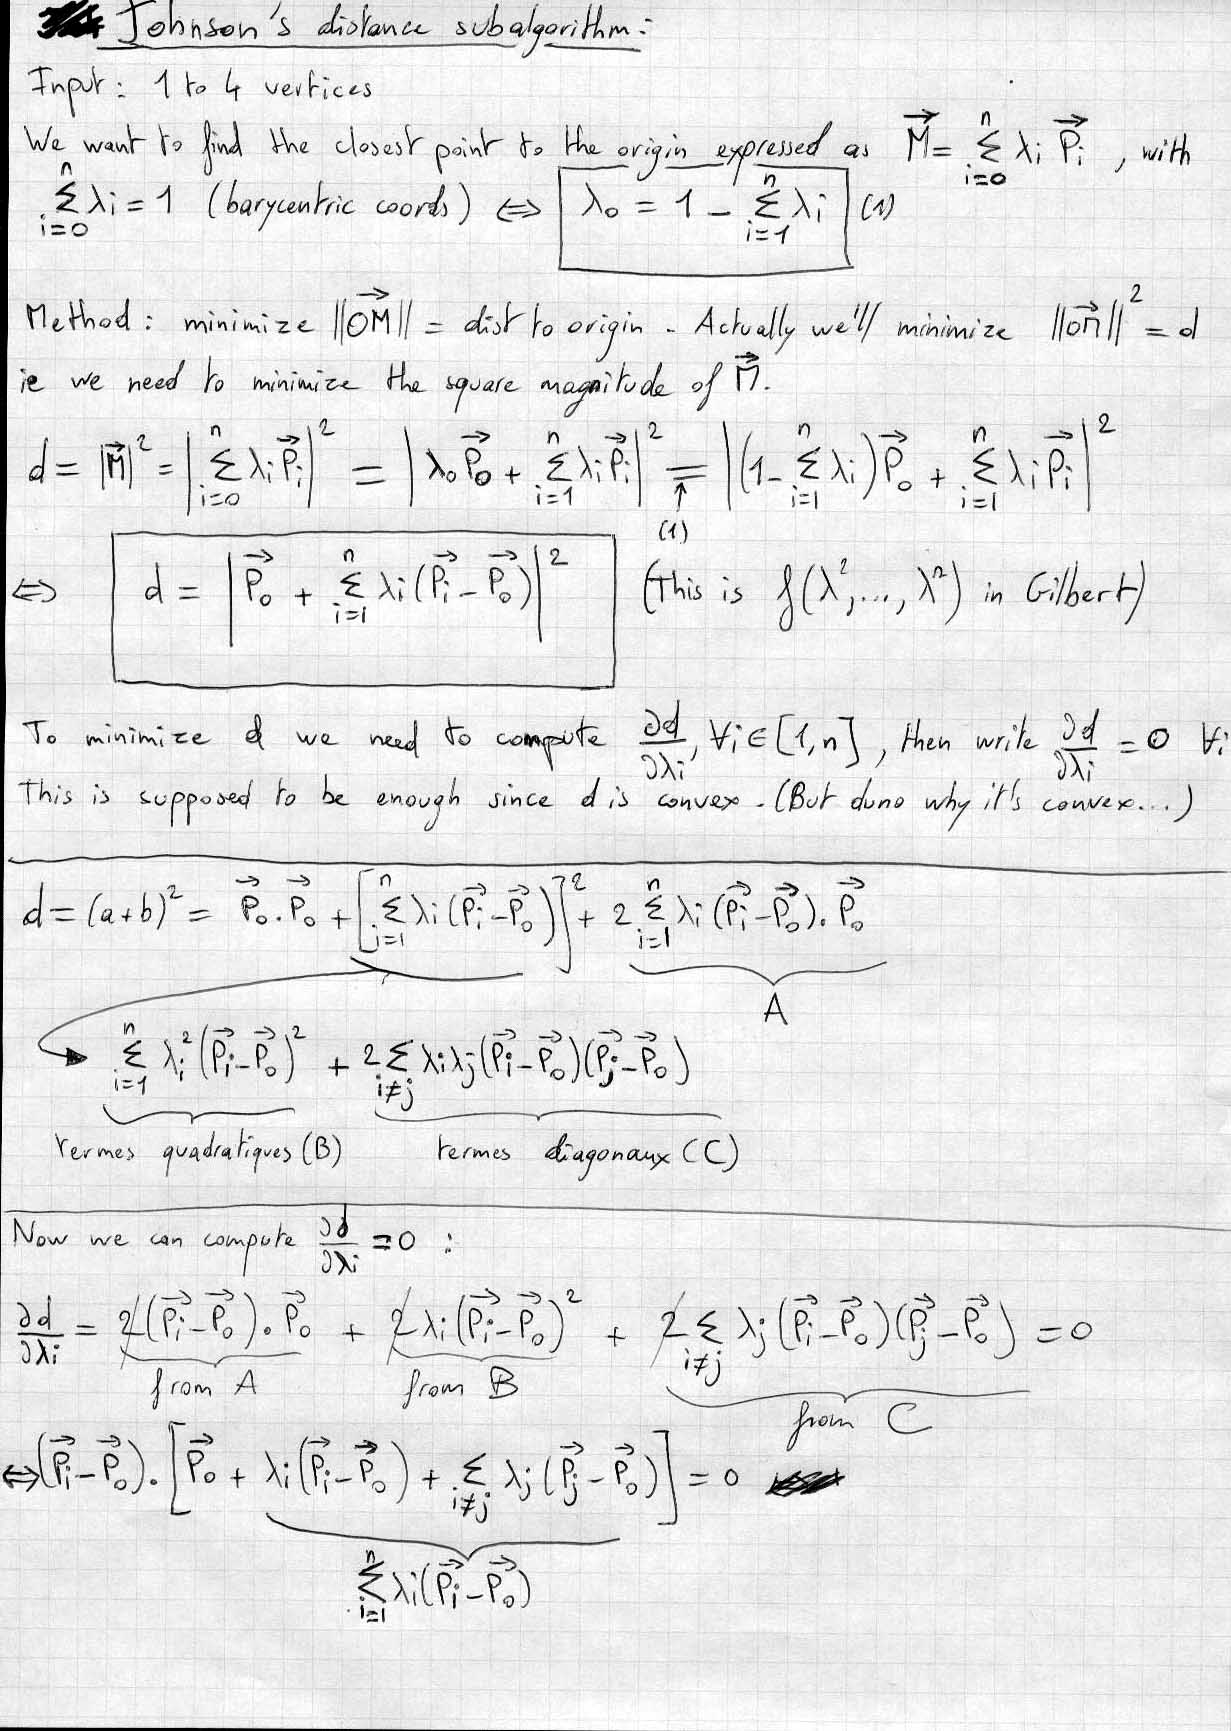 Johnson's distance subalgorithm:
Input: 1 to 4 vertices
We want to find the closest point to the origin expressed as $\vec{M} = \sum_{i=0}^{n} \lambda_i \vec{P_i}$, with
$\sum_{i=0}^{n} \lambda_i = 1$ (barycentric coords) ⇔ $\lambda_0 = 1 - \sum_{i=1}^{n} \lambda_i$ (1)
Method: minimize $||\vec{OM}||$ = dist to origin - Actually we'll minimize $||\vec{OM}||^2 = d$
ie we need to minimize the square magnitude of $\vec{M}$.
$d = |\vec{M}|^2 = \left|\sum_{i=0}^{n} \lambda_i \vec{P_i}\right|^2 = \left|\lambda_0 \vec{P_0} + \sum_{i=1}^{n} \lambda_i \vec{P_i}\right|^2 \underset{\underset{(1)}{\uparrow}}{=} \left|(1 - \sum_{i=1}^{n} \lambda_i)\vec{P_0} + \sum_{i=1}^{n} \lambda_i \vec{P_i}\right|^2$
⇔ $d = \left|\vec{P_0} + \sum_{i=1}^{n} \lambda_i (\vec{P_i} - \vec{P_0})\right|^2$ (This is $f(\lambda^2, ..., \lambda^n)$ in Gilbert)
To minimize d we need to compute $\frac{\partial d}{\partial \lambda_i}$, ∀i∈[1,n], then write $\frac{\partial d}{\partial \lambda_i} = 0$ ∀i
This is supposed to be enough since d is convex. (But duno why it's convex...)
$d = (a+b)^2 = \vec{P_0}.\vec{P_0} + \left[\sum_{i=1}^{n} \lambda_i (\vec{P_i} - \vec{P_0})\right]^2 + 2\sum_{i=1}^{n} \lambda_i (\vec{P_i} - \vec{P_0}).\vec{P_0}$
A
$\sum_{i=1}^{n} \lambda_i^2 (\vec{P_i} - \vec{P_0})^2 + 2\sum_{i \neq j} \lambda_i \lambda_j (\vec{P_i} - \vec{P_0})(\vec{P_j} - \vec{P_0})$
termes quadratiques (B) termes diagonaux (C)
Now we can compute $\frac{\partial d}{\partial \lambda_i} = 0$ :
$\frac{\partial d}{\partial \lambda_i} = 2(\vec{P_i} - \vec{P_0}).\vec{P_0} + 2\lambda_i (\vec{P_i} - \vec{P_0})^2 + 2\sum_{i \neq j} \lambda_j (\vec{P_i} - \vec{P_0})(\vec{P_j} - \vec{P_0}) = 0$
from A from B from C
⇔ $(\vec{P_i} - \vec{P_0}).\left[\vec{P_0} + \lambda_i (\vec{P_i} - \vec{P_0}) + \sum_{i \neq j} \lambda_j (\vec{P_j} - \vec{P_0})\right] = 0$
$\sum_{i=1}^{n} \lambda_i (\vec{P_i} - \vec{P_0})$